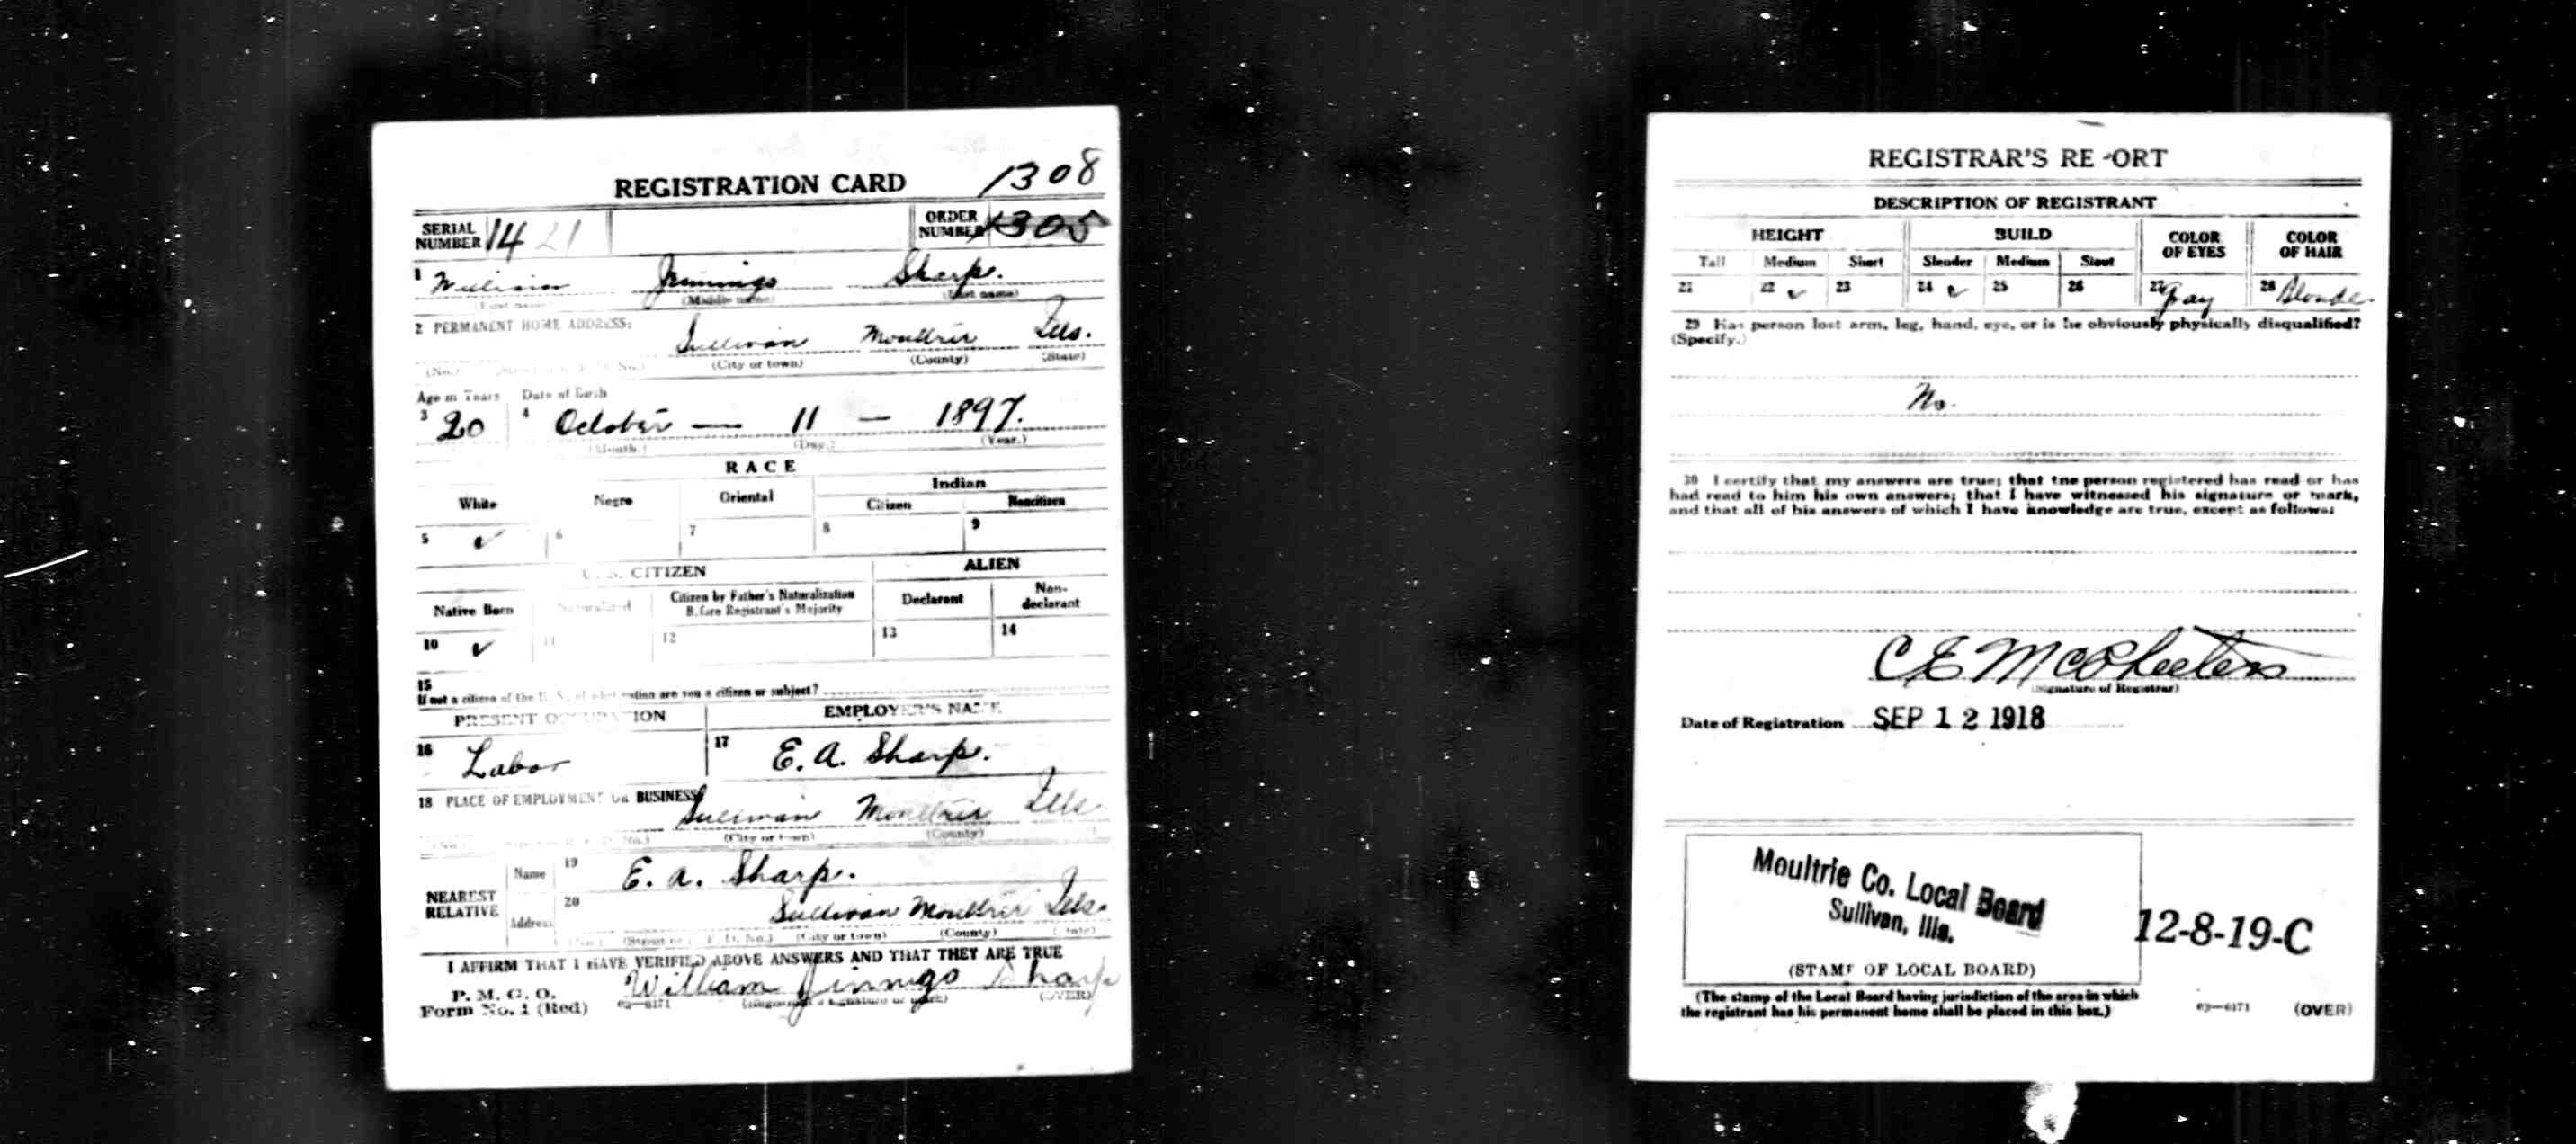 REGISTRATION CARD 1308
SERIAL NUMBER 1421 ORDER NUMBER 1305
1 William Jennings Sharp.
(First name) (Middle name) (Last name)
2 PERMANENT HOME ADDRESS:
Sullivan Moultrie Ills.
(No.) (City or town) (County) (State)
Age in Years Date of Birth
3 20 4 October — 11 — 1897.
(Month.) (Day.) (Year.)
RACE
White Negro Oriental Indian
Citizen Noncitizen
5 ✓ 6 7 8 9
U. S. CITIZEN ALIEN
Native Born Naturalized Citizen by Father's Naturalization Before Registrant's Majority Declarant Non-declarant
10 ✓ 11 12 13 14
15
If not a citizen of the U. S., of what nation are you a citizen or subject?
PRESENT OCCUPATION EMPLOYER'S NAME
16 Labor 17 E. A. Sharp.
18 PLACE OF EMPLOYMENT OR BUSINESS
Sullivan Moultrie Ills
(No.) (City or town) (County)
NEAREST RELATIVE
Name 19 E. A. Sharp.
Address 20 Sullivan Moultrie Ills.
(No.) (Street or R. F. D. No.) (City or town) (County) (State)
I AFFIRM THAT I HAVE VERIFIED ABOVE ANSWERS AND THAT THEY ARE TRUE
P. M. G. O.
Form No. 1 (Red) 03—6171 William Jinnigs Sharp
(Registrant's signature or mark) (OVER)
REGISTRAR'S RE ORT
DESCRIPTION OF REGISTRANT
HEIGHT BUILD COLOR OF EYES COLOR OF HAIR
Tall Medium Short Slender Medium Stout
21 22 ✓ 23 24 ✓ 25 26 27 Gray 28 Blonde
29 Has person lost arm, leg, hand, eye, or is he obviously physically disqualified?
(Specify.)
No.
30 I certify that my answers are true; that the person registered has read or has
had read to him his own answers; that I have witnessed his signature or mark,
and that all of his answers of which I have knowledge are true, except as follows:
C E McPheeters
(Signature of Registrar)
Date of Registration SEP 12 1918
Moultrie Co. Local Board
Sullivan, Ills.
12-8-19-C
(STAMP OF LOCAL BOARD)
(The stamp of the Local Board having jurisdiction of the area in which
the registrant has his permanent home shall be placed in this box.)
03—6171 (OVER)